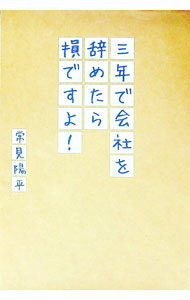 三年で会社を
辞めたら
損ですよ!
常見陽平